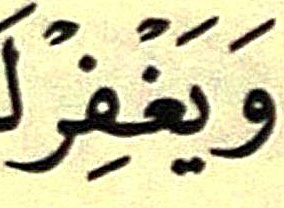 وَيَغْفِرْ لَ